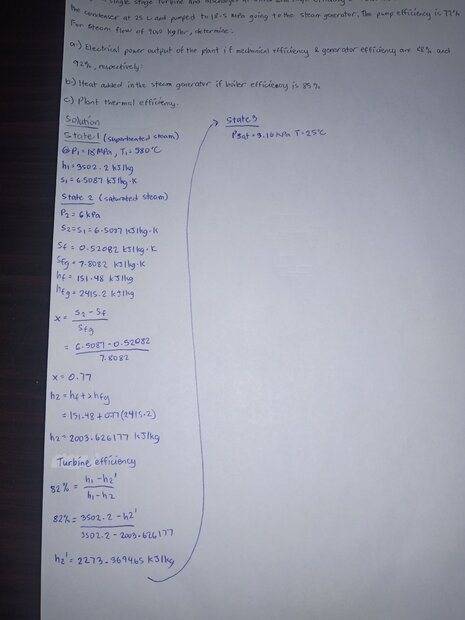 single stage turbine and discharges
the condenser at 25 C and pumped to 18.5 MPa going to the steam generator, the pump efficiency is 77%
For steam flow of 9000 kg/hr, determine:
a.) Electrical power output of the plant if mechanical efficiency & generator efficiency are 88% and
92%, respectively:
b.) Heat added in the steam generator if boiler efficiency is 85%
c.) Plant thermal efficiency.
Solution
State 1 (superheated steam)
P1 = 18 MPa, T1 = 580°C
h1 = 3502.2 kJ/kg
s1 = 6.5087 kJ/kg·K
State 2 (saturated steam)
P2 = 6 kPa
S2 = S1 = 6.5087 kJ/kg·K
Sf = 0.52082 kJ/kg·K
Sfg = 7.8082 kJ/kg·K
hf = 151.48 kJ/kg
hfg = 2415.2 kJ/kg
x = S2 - Sf
Sfg
= 6.5087 - 0.52082
7.8082
x = 0.77
h2 = hf + xhfg
= 151.48 + 0.77(2415.2)
h2 = 2003.626177 kJ/kg
Turbine efficiency
82% = h1 - h2'
h1 - h2
82% = 3502.2 - h2'
3502.2 - 2003.626177
h2' = 2273.369465 kJ/kg
State 3
Psat = 3.16 kPa T = 25°C